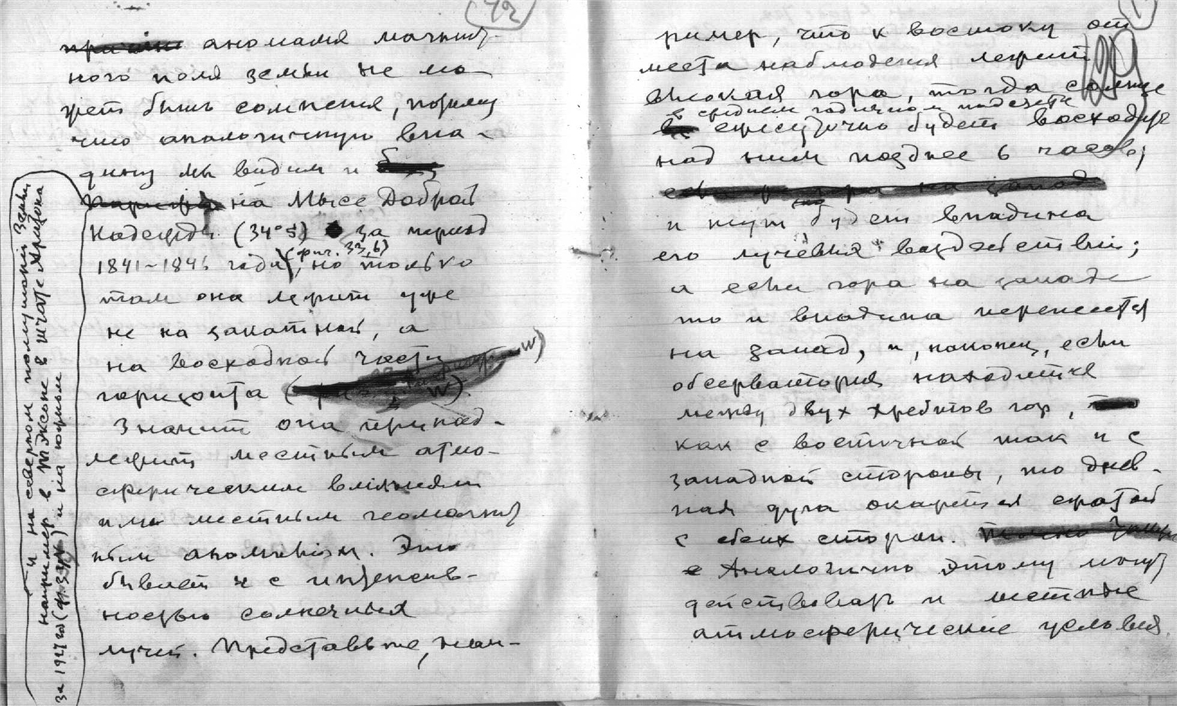 42
аномалия магнит-
ного поля земли не мо
жет быть сомнения, потому
что аналогичную впа-
дину мы видим и
на Мысе Доброй
Надежды (34°S) за период
1841-1846 годы (рис. 33,б), но только
там она лежит уже
не на закатной, а
на восходной части
горизонта (
Значит она принад-
лежит местным атмо-
сферическим влияниям
или местным геомагнит
ным аномалиям. Это
бывает и с интенсив-
ностью солнечных
лучей. Представьте, нап-
и на северном полушарии Земли,
например в Тэксоне в штате Аризона
за 1927 го и на южном
ример, что к востоку от
места наблюдения лежит
высокая гора, тогда солнце
в среднем годичном
ежесуточно будет восходить
над ним позднее 6 часов;
и тут будет впадина
его лучевия воздействий;
а если гора на западе
то и впадина перенесется
на запад, и, наконец, если
обсерватория находится
между двух хребтов гор,
как с восточной так и с
западной стороны, то днев-
ная дуга окажется сжатой
с обеих сторон.
Аналогично этому могут
действовать и местные
атмосферические условия.